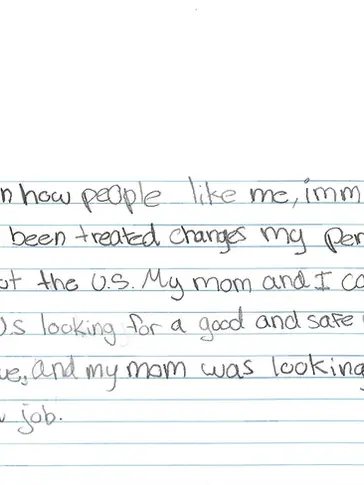 n how people like me, imm
been treated changes my per
ut the U.S. My mom and I co
U.S looking for a good and safe
ve, and my mom was looking
job.